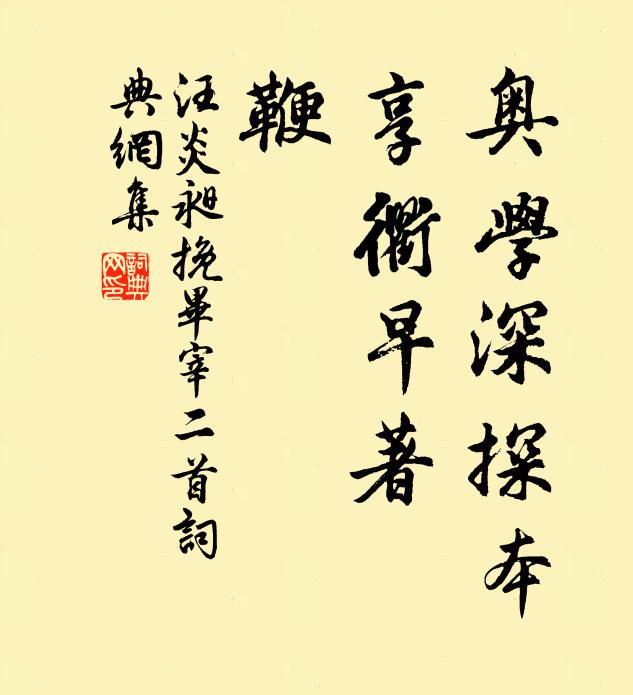 奧學深探本
享衢早著
鞭
汪炎昶挽畢宰二首詞
典網集
詞典
网印